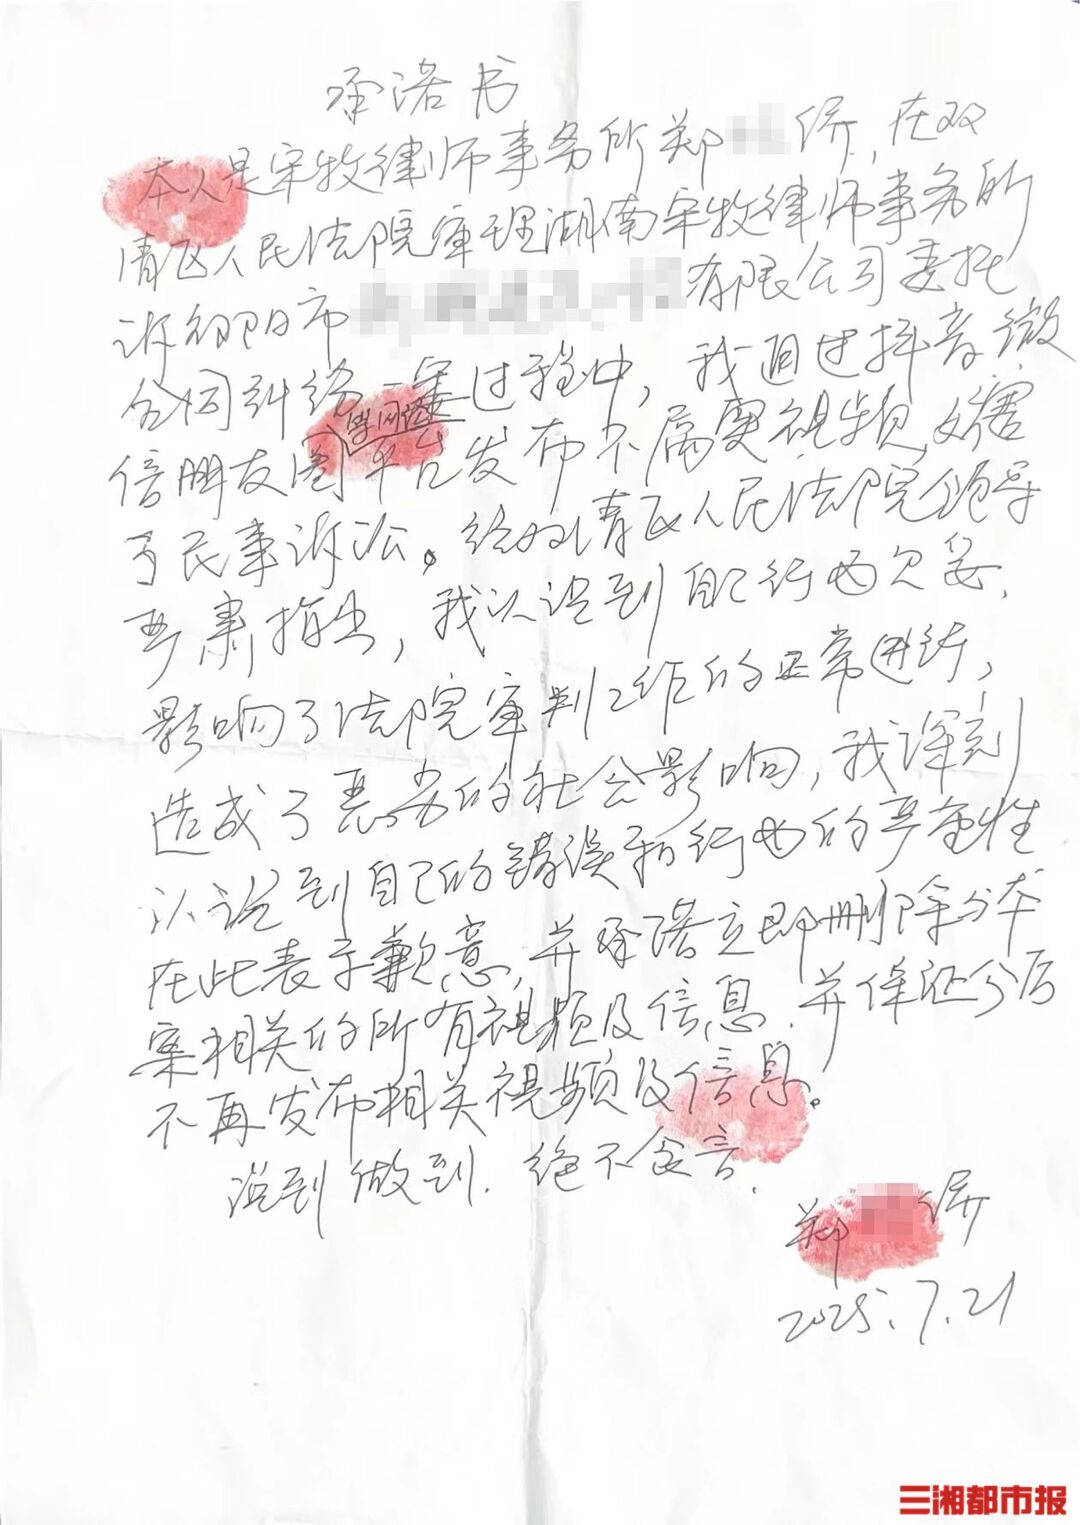 承诺书
本人是宋牧律师事务所郑 侨,在双
清区人民法院审理湖南宋牧律师事务所
诉邵阳市 有限公司委托
合同纠纷一案过程中,我通过抖音、微
信朋友圈 平台发布不属实视频,妨害
了民事诉讼。经双清区人民法院领导
严肃指出,我认识到自己行为欠妥,
影响了法院审判工作的正常进行,
造成了恶劣的社会影响,我深刻
认识到自己的错误和行为的严重性
在此表示歉意,并承诺立即删除与本
案相关的所有视频及信息.并保证今后
不再发布相关视频及信息。
说到做到.绝不食言.
郑 侨
2025.7.21
三湘都市报